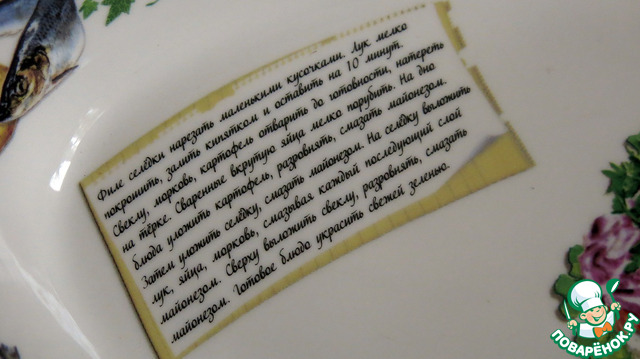 Филе селёдки нарезать маленькими кусочками. Лук мелко
покрошить, залить кипятком и оставить на 10 минут.
Свеклу, морковь, картофель отварить до готовности, натереть
на тёрке. Сваренные вкрутую яйца мелко порубить. На дно
блюда уложить картофель, разровнять, смазать майонезом.
Затем уложить селёдку, смазать майонезом. На селёдку выложить
лук, яйца, морковь, смазывая каждый последующий слой
майонезом. Сверху выложить свеклу, разровнять, смазать
майонезом. Готовое блюдо украсить свежей зеленью.
ПОВАРЁНОК.РУ